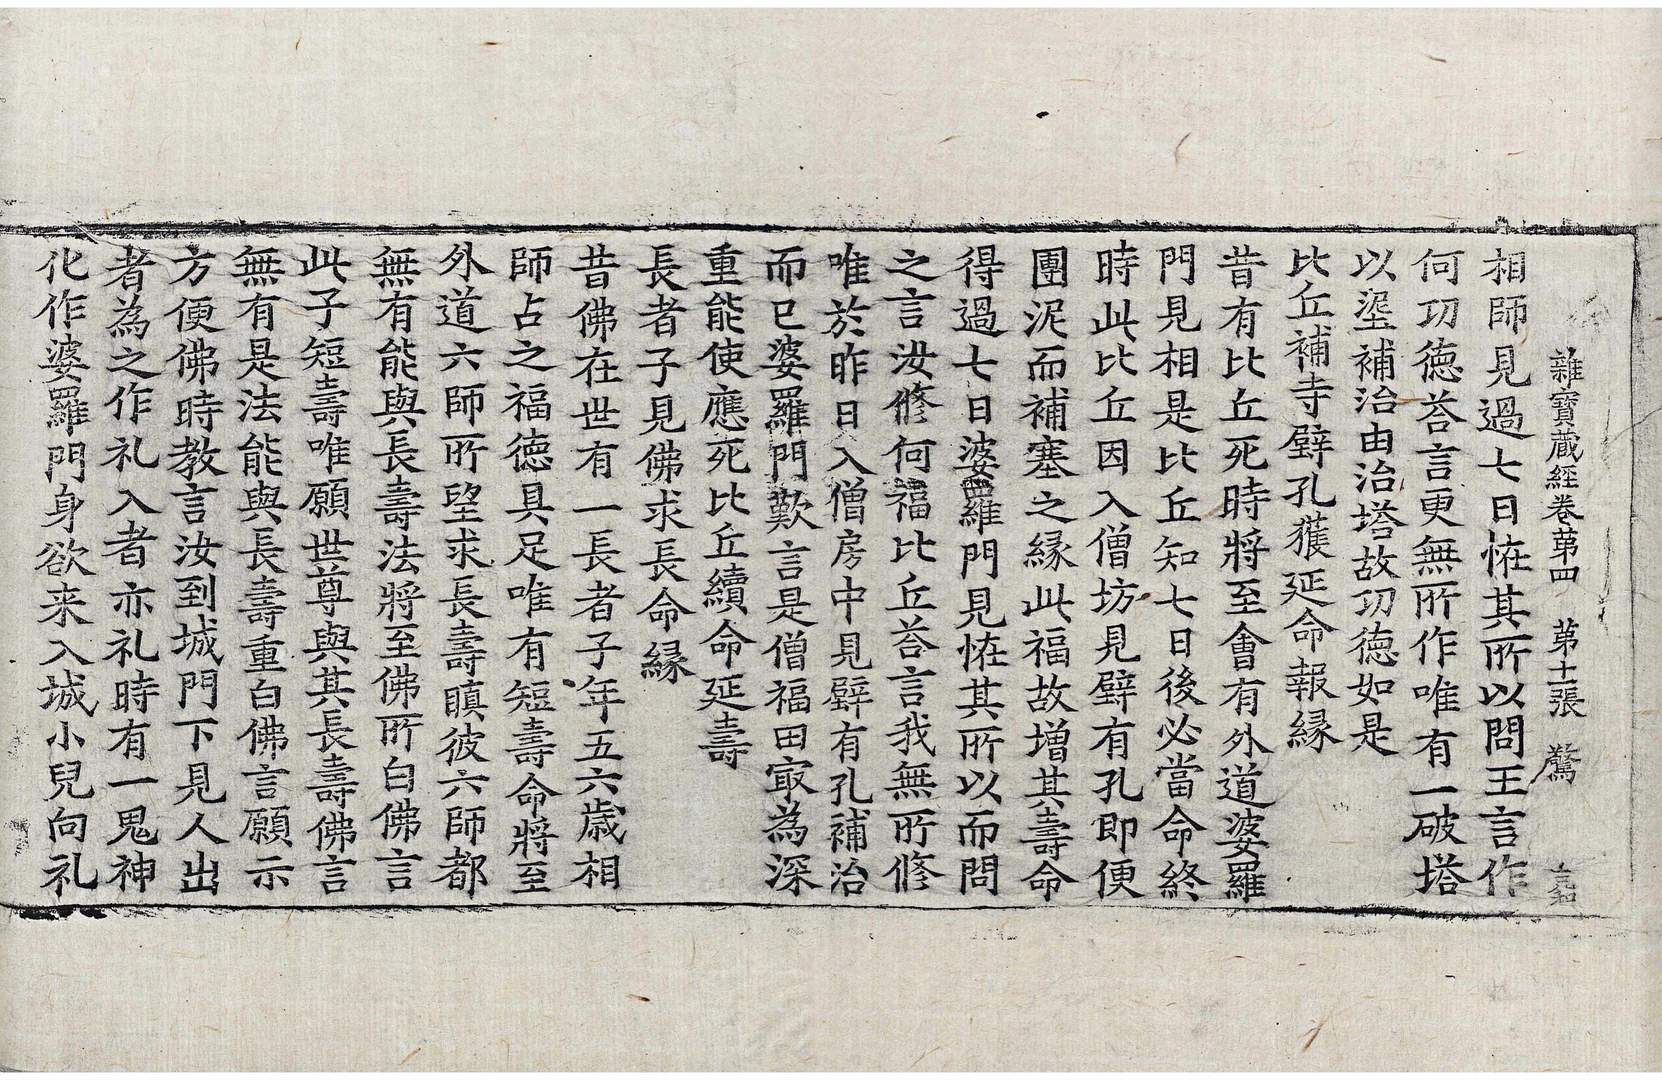 雜寶蔵經卷第四 第十一張 驚
相師見過七日恠其所以問王言作
何功徳荅言更無所作唯有一破塔
以埿補治由治塔故功德如是
比丘補寺壁孔獲延命報緣
昔有比丘死時將至會有外道婆羅
門見相是比丘知七日後必當命終
時此比丘因入僧坊見壁有孔即便
團泥而補塞之緣此福故增其壽命
得過七日婆羅門見恠其所以而問
之言汝修何福比丘荅言我無所修
唯於昨日入僧房中見壁有孔補治
而已婆羅門歎言是僧福田㝡為深
重能使應死比丘續命延壽
長者子見佛求長命緣
昔佛在世有一長者子年五六歲相
師占之福德具足唯有短壽命將至
外道六師所望求長壽瞋彼六師都
無有能與長壽法將至佛所白佛言
此子短壽唯願世尊與其長壽佛言
無有是法能與長壽重白佛言願示
方便佛時教言汝到城門下見人出
者為之作礼入者亦礼時有一鬼神
化作婆羅門身欲来入城小兒向礼